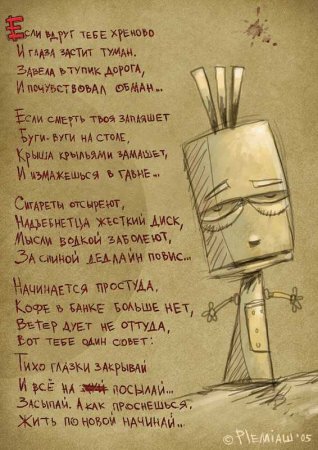 Если вдруг тебе хреново
И глаза застит туман.
Завела в тупик дорога,
И почувствовал обман...
Если смерть твоя запляшет
Буги-вуги на столе,
Крыша крыльями замашет,
И измажешься в гавне...
Сигареты отсыреют,
Надъебнетца жесткий диск,
Мысли водкой заболеют,
За спиной дедлайн повис...
Начинается простуда,
Кофе в банке больше нет,
Ветер дует не оттуда,
Вот тебе один совет:
Тихо глазки закрывай
И всё на посылай...
Засыпай. А как проснешься,
Жить по новой начинай...
© PlемiАш'05